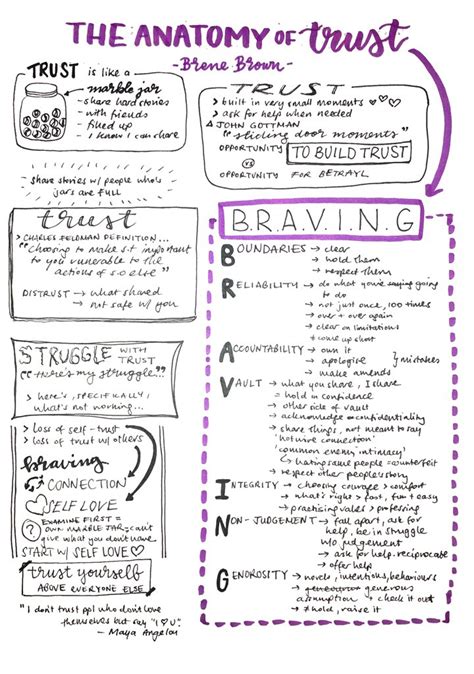 THE ANATOMY OF trust
- Brene Brown -
TRUST is like a
marble jar
- share hard stories
- with friends
- filled up
- I know I can share
share stories w/ people who's
jars are FULL
TRUST
> built in very small moments
> ask for help when needed
JOHN GOTTMAN
"sliding door moments"
OPPORTUNITY TO BUILD TRUST
VS
OPPORTUNITY FOR BETRAYL
trust
> CHARLES FELDMAN DEFINITION...
"Choosing to make s.t important
to you vulnerable to the
actions of s.o else"
DISTRUST → what shared
→ not safe w/ you
STRUGGLE WITH
TRUST
"there's my struggle..."
> here's, SPECIFICALLY,
what's not working...
> loss of self-trust
> loss of trust w/ others
braving
CONNECTION
SELF LOVE
? EXAMINE FIRST =
OWN MARBLE JAR → can't
give what you don't have
START W/ SELF LOVE
trust yourself
ABOVE EVERYONE ELSE
"I don't trust ppl who don't love
themselves but say "I ♡ U"
- Maya Angelou
B.R.A.V.I.N.G
BOUNDARIES → clear
→ hold them
→ respect them
RELIABILITY → do what you're saying going
to do
→ not just once, 100 times
→ over + over again
→ clear on limitations
+ come up short
ACCOUNTABILITY → own it
→ apologise } mistakes
→ make amends
VAULT → what you share, I share
= hold in confidence
→ other side of vault
→ acknowledge confidentiality
→ share things, not meant to say
'hotwire connection'
'common enemy intimacy'
↳ hating same people = counterfeit
→ respect other people's story
INTEGRITY → choosing courage > comfort
→ what's right > fast, fun + easy
→ practicing values > professing
NON-JUDGEMENT → fall apart, ask for
help, be in struggle
w/o judgement
→ ask for help - reciprocate
→ offer help
GENOROSITY → novels, intentions, behaviours
→ generous
assumption + check it out
→ ≠ hold, raise it